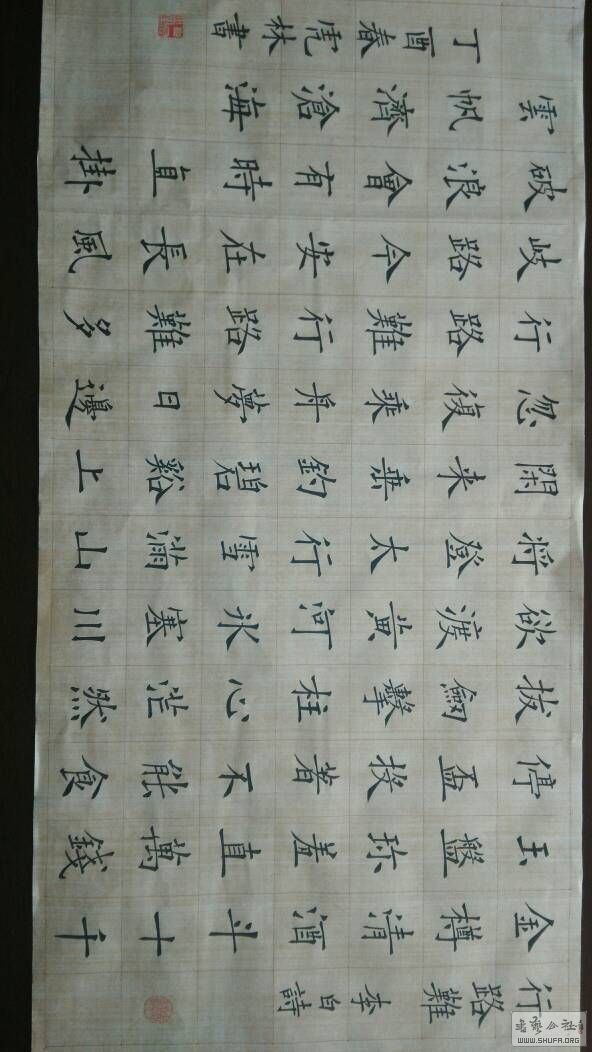 行路難 李白詩
金樽清酒斗十千
玉盤珎羞直萬錢
停盃投著不能食
拔劒擊柱心茫然
欲渡黄河氷塞川
将登太行雪滿山
閑来垂釣碧谿上
忽復乘舟夢日邊
行路難行路難多
歧路今安在長風
破浪會有時直掛
雲帆濟滄海
丁酉春虎林書
WWW.SHUFA.ORG